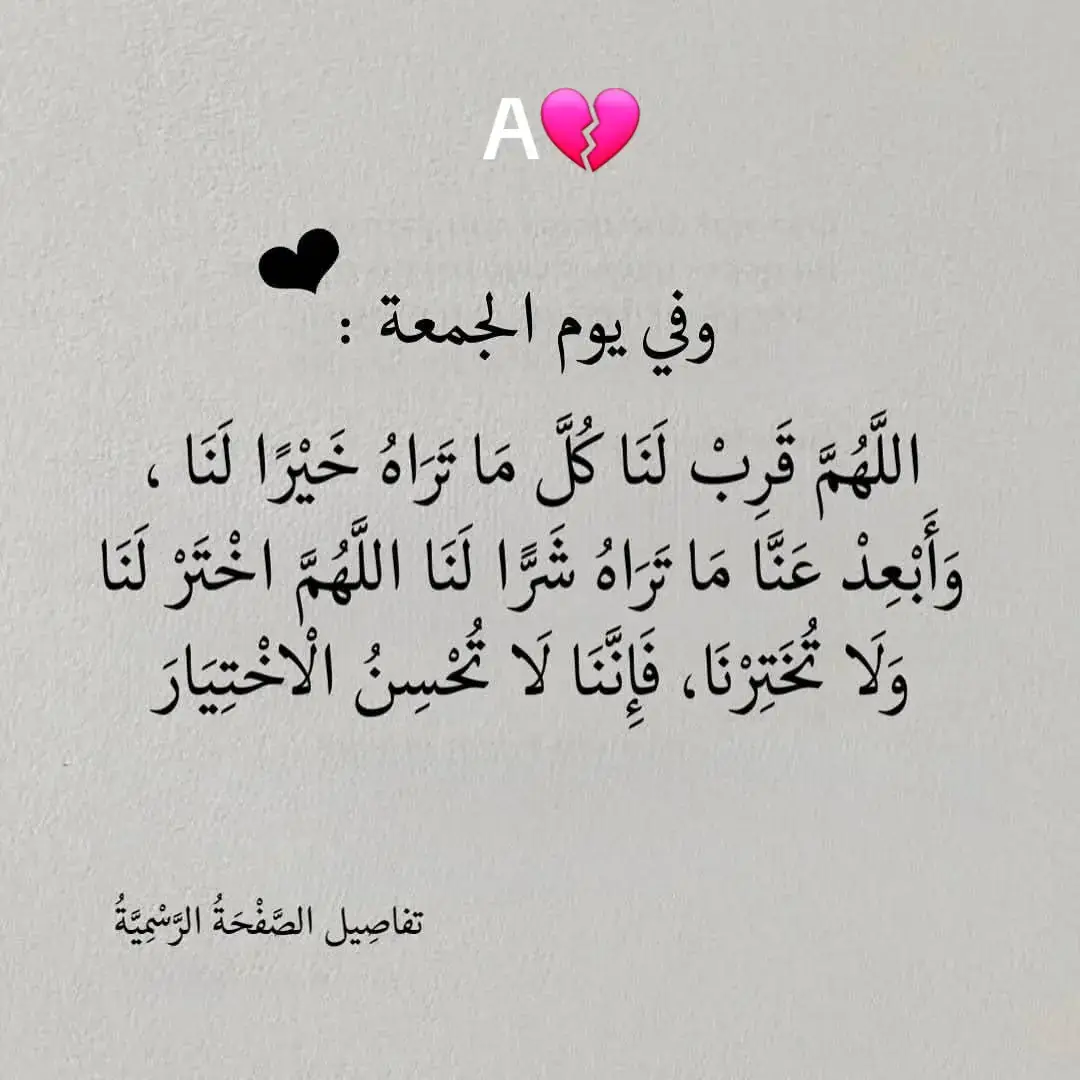 A💔
وفي يوم الجمعة :
اللَّهُمَّ قَرِبْ لَنَا كُلَّ مَا تَرَاهُ خَيْرًا لَنَا ،
وَأَبْعِدْ عَنَّا مَا تَرَاهُ شَرًّا لَنَا اللَّهُمَّ اخْتَرْ لَنَا
وَلَا تُخَتِرْنَا، فَإِنَّنَا لَا تُحْسِنُ الْاخْتِيَارَ
تفاصِيل الصَّفْحَةُ الرَّسْمِيَّةُ